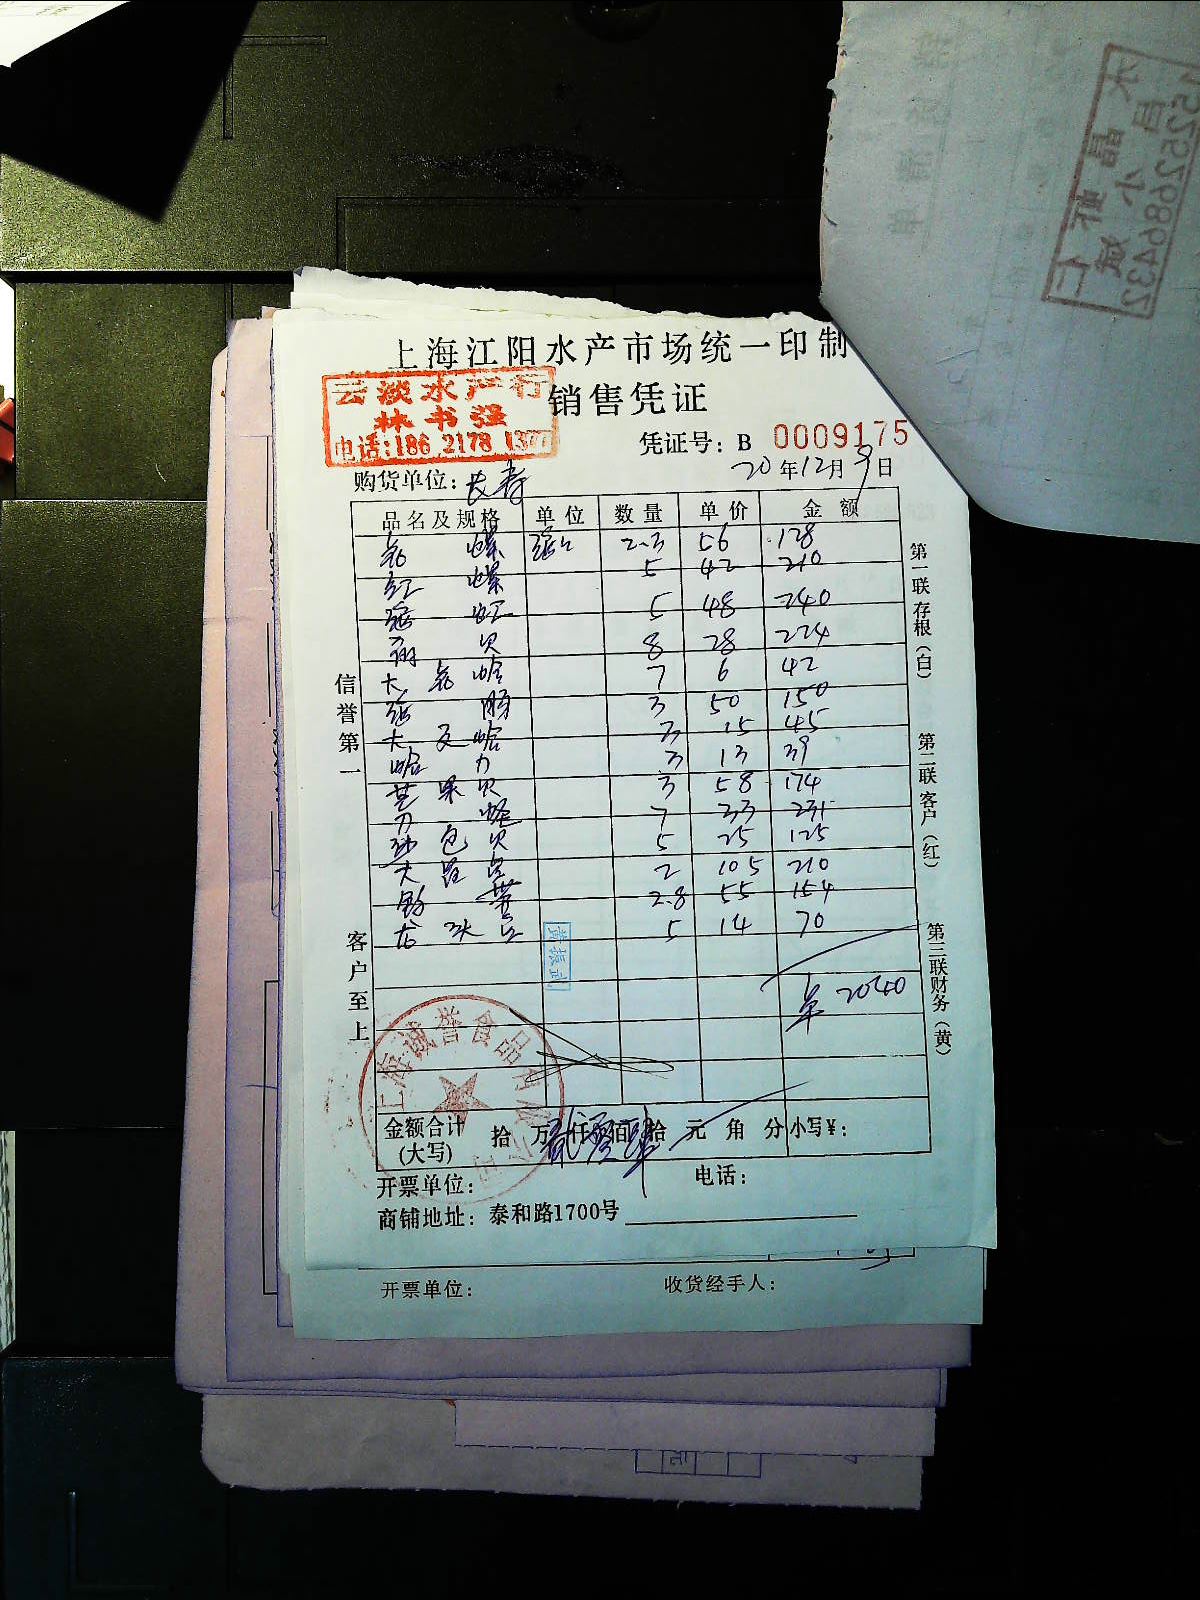 上海江阳水产市场统一印制
云淡水产行
林书强
电话:186 2178 1377
销售凭证
凭证号: B 0009175
购货单位: 长寿
20年12月9日
品名及规格 单位 数量 单价 金额
花螺 2.3 56 128
红螺 5 42 210
5 48 240
贝 8 28 224
大花蛤 7 6 42
3 50 150
大文蛤 3 15 45
蛤 3 13 39
芒果贝 3 58 174
刀蛏 7 33 231
包贝 5 25 125
大 2 105 210
2.8 55 154
5 14 70
2040
黄振武
信誉第一
客户至上
第一联存根(白)
第二联客户(红)
第三联财务(黄)
上海诚誉食品有限公司
金额合计(大写) 拾 万 仟 佰 拾 元 角 分 小写¥:
开票单位: 电话:
商铺地址: 泰和路1700号
开票单位: 收货经手人:
水晶虾仁
15252686432